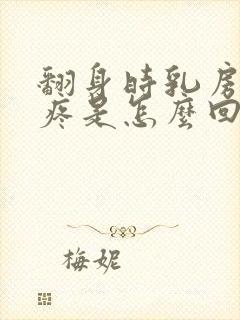 翻身時乳房
疼是怎麼回
梅妮